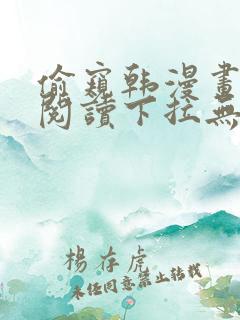 偷窺韩漫畫
閱讀下拉無
楊存虎
未经同意禁止转载